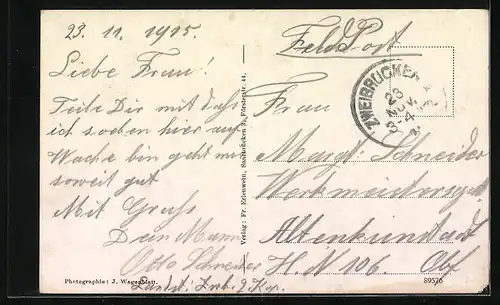 23. 11. 1915
Liebe Frau!
Teile Dir mit daß
ich soeben hier auf
Wache bin geht mir
soweit gut
Mit Gruß
Dein Mann
Otto Schneider
Landst. Inf. 2. Kp.
Photographie: J. Wagenblatt.
Verlag: Fr. Erlenwein, Saarbrücken 3, Försterstr. 44.
Feld Post
ZWEIBRÜCKEN
23
NOV.
Frau
Margt. Schneider
Werkmeistersgatt.
Altenkundstadt
H. N 106. Obf.
89576